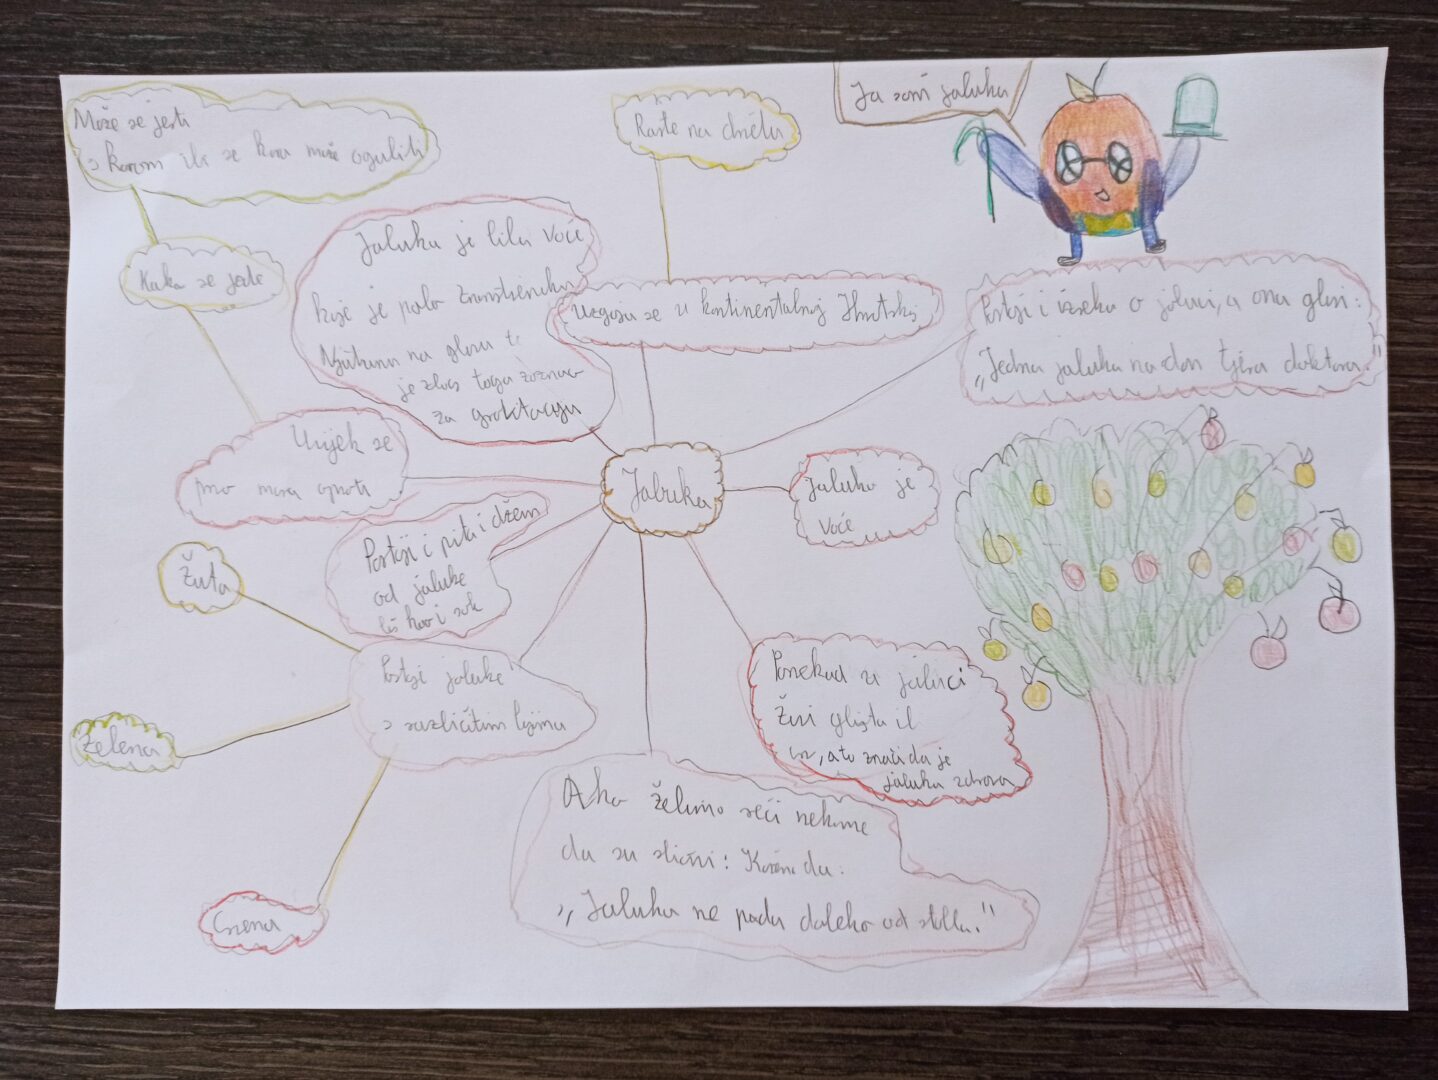 Može se jesti
s korom ili se kora može oguliti
Kako se jede
Uvijek se
prvo mora oprati
Jabuka je bila voće
koje je palo znanstveniku
Njutunu na glavu te
je zbog toga zaznao
za gravitaciju
Raste na drvetu
Uzgaja se u kontinentalnoj Hrvatskoj
Ja sam jabuka
Postoji i izreka o jabuci, a ona glasi:
„Jedna jabuka na dan tjera doktora."
Jabuka
Jabuka je
voće
Postoji i pita i džem
od jabuke
i sok
Žuta
Zelena
Crvena
Postoji jabuke
s različitim bojama
Ponekad u jabuci
živi glista il
crv, a to znači da je
jabuka zdrava
Ako želimo reći nekome
da su slični: Kažemo da:
„Jabuka ne pada daleko od stabla."